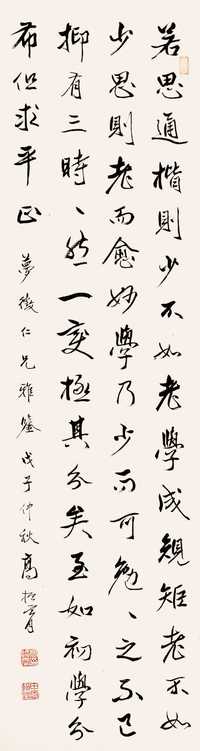 若思通楷則少不如老學成規矩老不如
少思則老而愈妙學乃少而可勉〻之不已
抑有三時〻然一變極其分矣至如初學分
布但求平正
夢徵仁兄雅鑒 戊子仲秋 高振霄